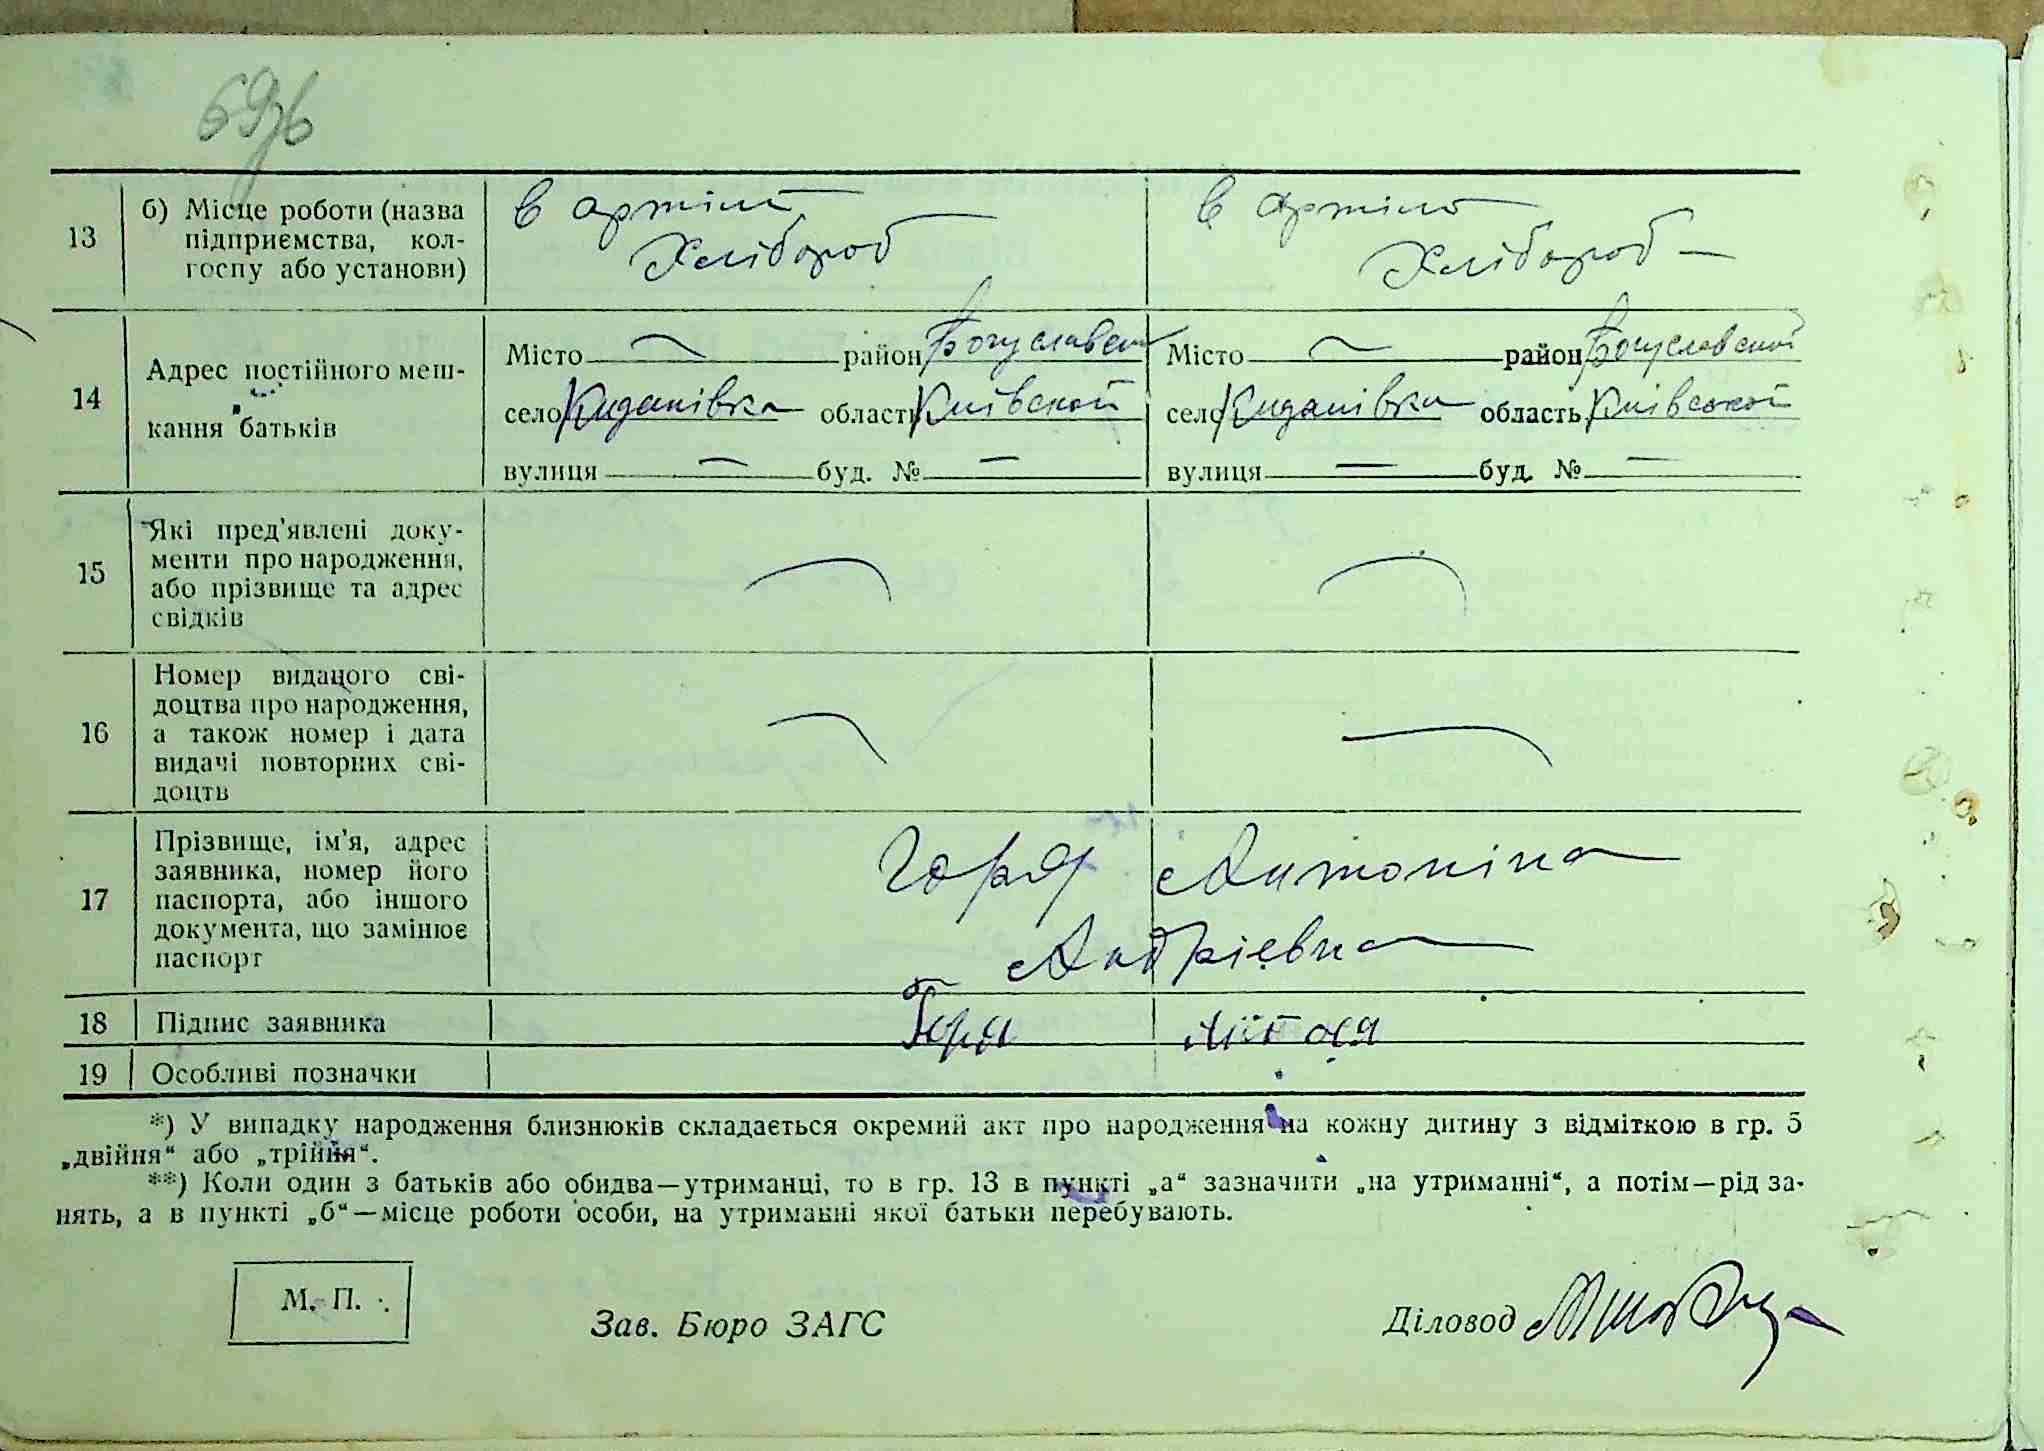 69зв
13
б) Місце роботи (назва
підприємства, кол-
госпу або установи)
в артіли
Хлібороб
в артіли
Хлібороб —
14
Адрес постійного меш-
кання батьків
Місто — район Богуславский
село Киданівка область Київской
вулиця — буд. № —
Місто — район Богуславской
село Киданівка область Київской
вулиця — буд. № —
15
Які пред'явлені доку-
менти про народження,
або прізвище та адрес
свідків
16
Номер виданого сві-
доцтва про народження,
а також номер і дата
видачі повторних сві-
доцтв
17
Прізвище, ім'я, адрес
заявника, номер його
паспорта, або іншого
документа, що замінює
паспорт
Горя Антоніна
Андрієвна
18 Підпис заявника
Горя
19 Особливі позначки
*) У випадку народження близнюків складається окремий акт про народження на кожну дитину з відміткою в гр. 5
„двійня“ або „трійня“.
**) Коли один з батьків або обидва—утриманці, то в гр. 13 в пункті „а“ зазначити „на утриманні“, а потім—рід за-
нять, а в пункті „б“—місце роботи особи, на утриманні якої батьки перебувають.
М. П.
Зав. Бюро ЗАГС
Діловод